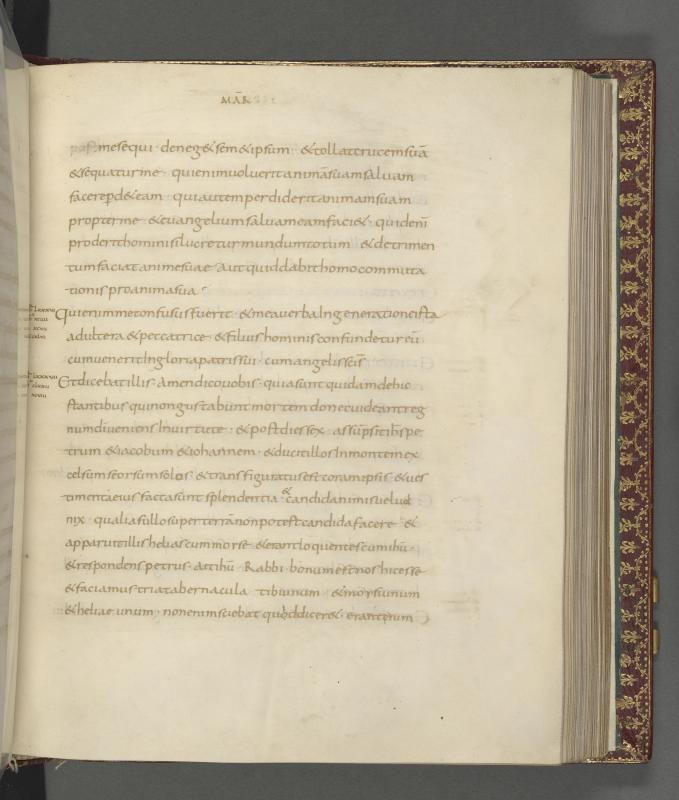 MAR̄
me sequi · deneget semetipsum · & tollat crucem suā
& sequatur me · qui enim voluerit animā suam salvam
facere p̄det eam · qui autem perdiderit animam suam
propter me · & evangelium salvam eam faciet · quid enī
proderit homini si lucretur mundum totum · & detrimen
tum faciat animę suae · Aut quid dabit homo commuta
tionis pro anima sua ·
Qui enim me confusus fuerit · & mea verba In generatione ista
adultera & peccatrice · & filius hominis confundetur eū
cum venerit In gloria patris sui · cum angelis sc̄is
Et dicebat illis · Amen dico vobis · quia sunt quidam de hic
stantibus qui non gustabunt mortem donec videant reg
num dī veniens In virtute · & post dies sex · assūpsit ih̄s pe
trum & iacobum & iohannem · & ducit illos In montem ex
celsum seorsum solos · & transfiguratus est coram ipsis · & ves
timenta eius facta sunt splendentia & candida nimis velud
nix · qualia fullo super terrā non potest candida facere · &
apparuit illis helias cum mose · & erant loquentes cum ihū ·
& respondens petrus · ait ihū · Rabbi · bonum est nos hic esse
& faciamus tria tabernacula · tibi unum · & mosi unum
& heliae unum · non enim sciebat quid diceret · erant enim